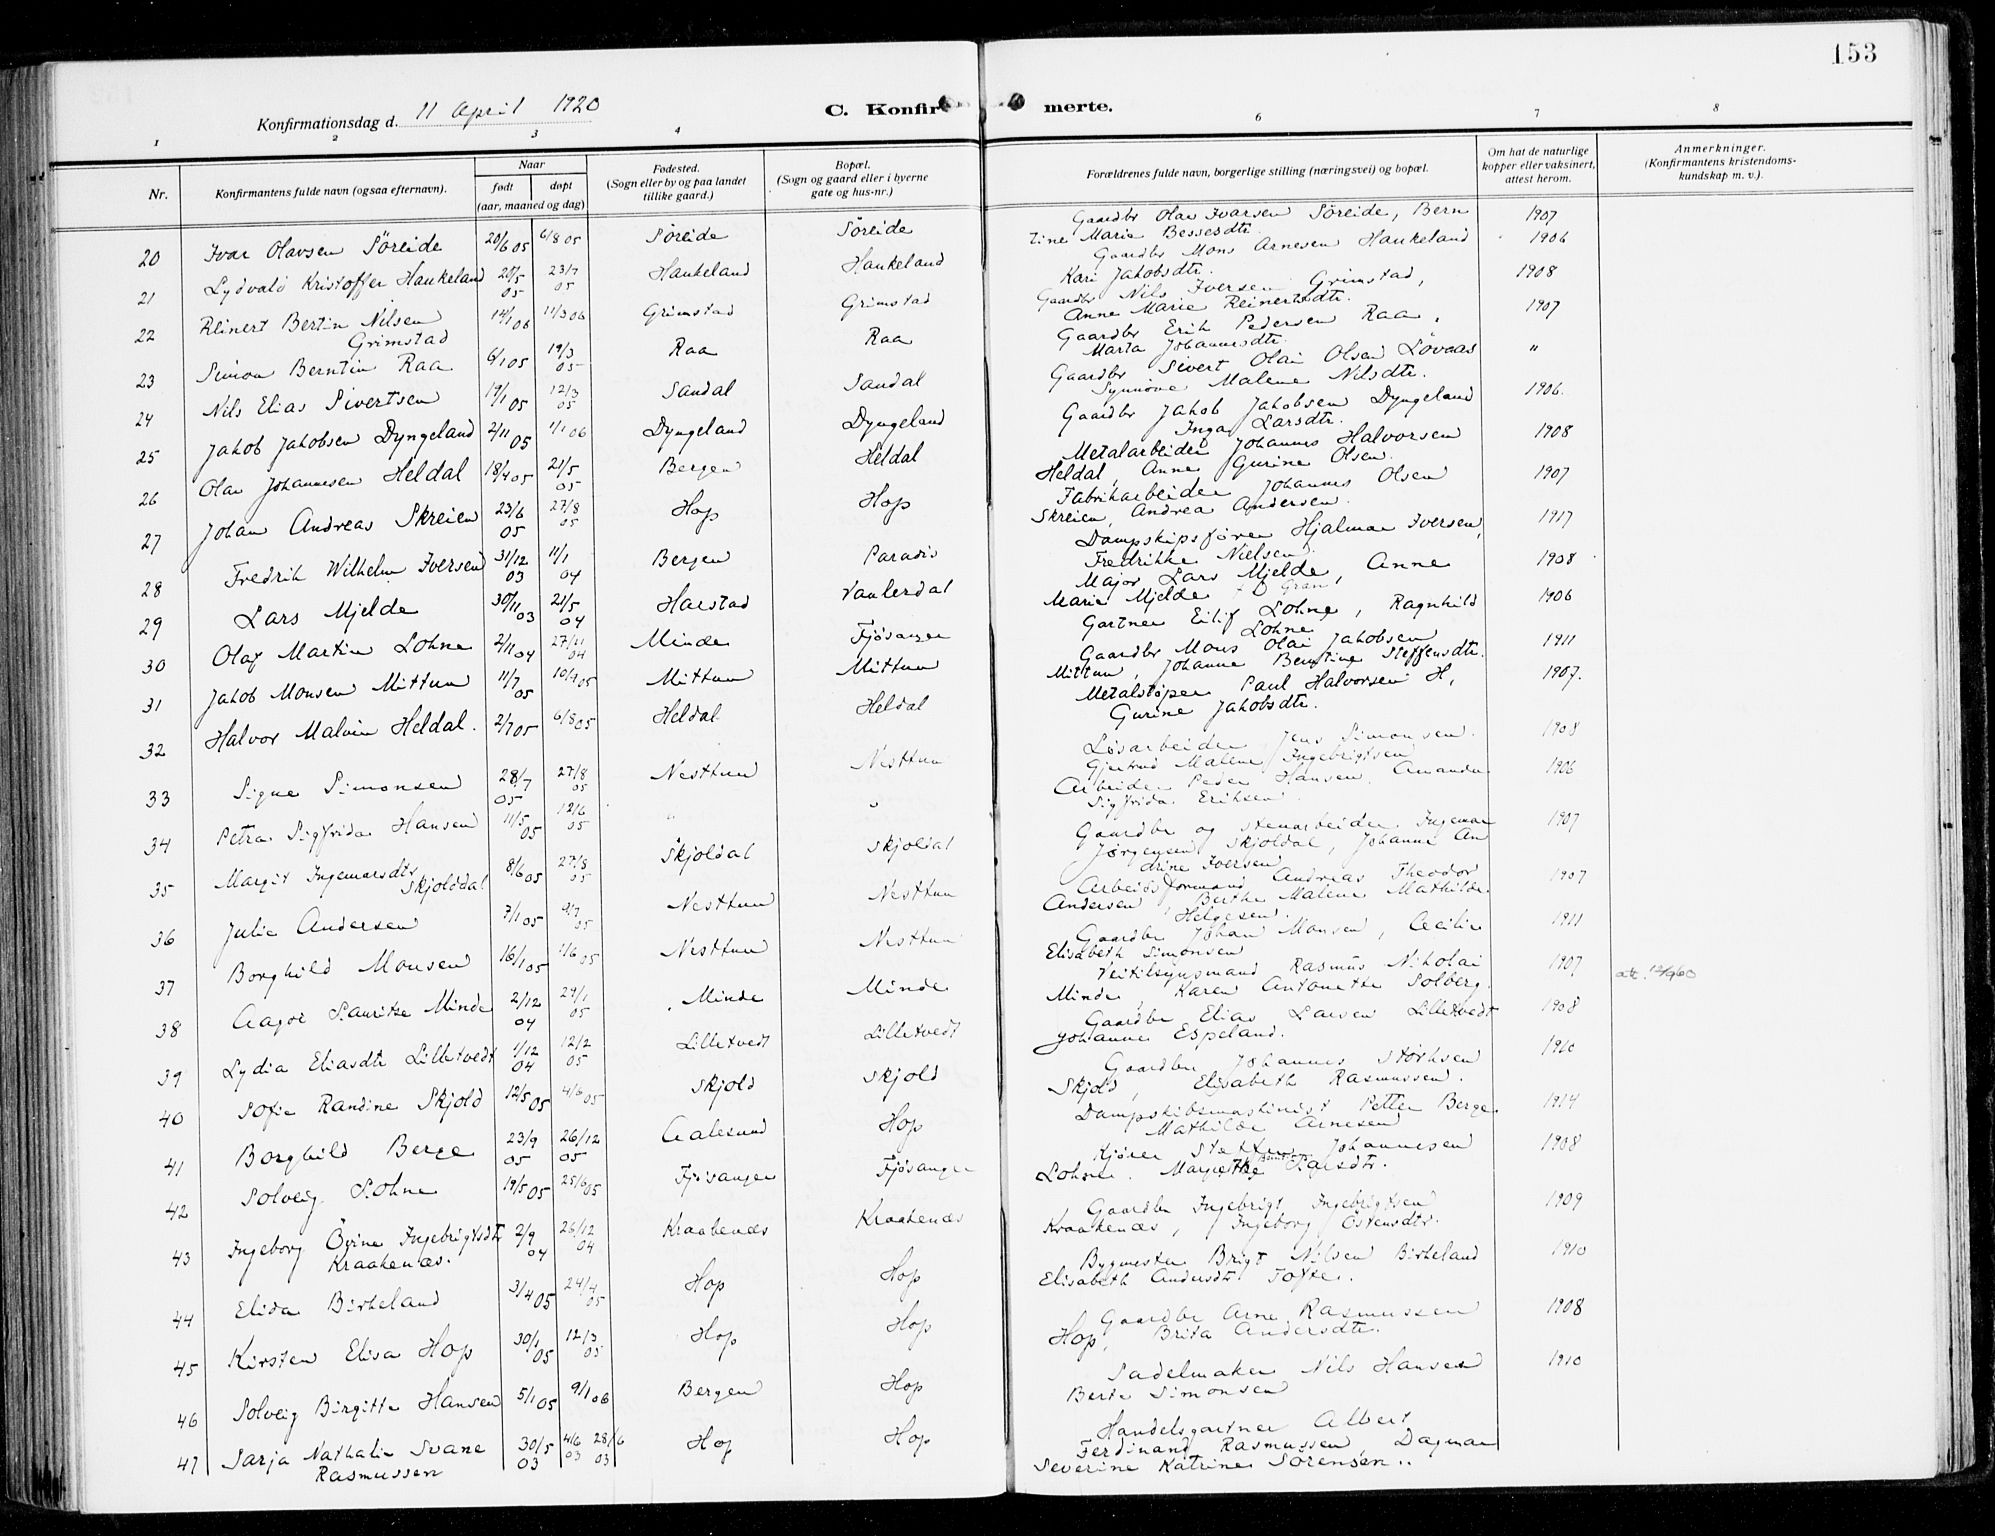 153
Konfirmationsdag d. 11 April 1920
C. Konfirmerte.
1 2 3 4 6 7 8
Nr. Konfirmantens fulde navn (ogsaa efternavn). Naar født døpt (aar, maaned og dag) Fødested. (Sogn eller by og paa landet tillike gaard.) Bopæl. (Sogn og gaard eller i byerne gate og hus-nr.) Forældrenes fulde navn, borgerlige stilling (næringsvei) og bopæl. Om hat de naturlige kopper eller vaksinert, attest herom. Anmerkninger. (Konfirmantens kristendomskundskap m. v.).
20 Ivar Olavsen Söreide 20/6 05 6/8 05 Söreide Söreide Gaardbr Olav Ivarsen Söreide, Bern 1907
tine Marie Bessesdtr.
21 Lydvald Kristoffer Haukeland 20/5 05 23/7 05 Haukeland Haukeland Gaardbr Mons Arnesen Haukeland 1906
Kari Jakobsdtr.
22 Reinert Bertin Nilsen Grimstad 14/1 06 11/3 06 Grimstad Grimstad Gaardbr Nils Iversen Grimstad, 1908
Anne Marie Reinertsdtr.
23 Simon Berntin Raa 6/1 05 19/3 05 Raa Raa Gaardbr Erik Pedersen Raa, 1907
Marta Johannesdtr.
24 Nils Elias Sivertsen 19/1 05 12/3 05 Sandal Sandal Gaardbr Sivert Olai Olsen Lövaas "
Synnöve Malene Nilsdtr.
25 Jakob Jakobsen Dyngeland 2/11 05 1/1 06 Dyngeland Dyngeland Gaardbr Jakob Jakobsen Dyngeland 1906.
Inga Larsdtr.
26 Olav Johannesen Heldal 18/4 05 21/5 05 Bergen Heldal Metalarbeider Johannes Halvorsen 1908
Heldal, Anne Gurine Olsen.
27 Johan Andreas Skreien 23/6 05 27/8 05 Hop Hop Fabrikarbeider Johannes Olsen 1907
Skreien, Andrea Andersen.
28 Fredrik Wilhelm Iversen 31/12 03 11/1 04 Bergen Paradis Dampskipsförer Hjalmar Iversen, 1917
Fredrikke Nielsen.
29 Lars Mjelde 30/11 03 21/5 04 Harstad Vallerdal Major Lars Mjelde, Anne 1908
Marie Mjelde f. D Gran
30 Olaf Martin Lohne 2/11 04 27/11 04 Minde Fjösanger Gartner Eilif Lohne, Ragnhild 1906
Lohne
31 Jakob Monsen Mittun 11/7 05 10/9 05 Mittun Mittun Gaardbr Mons Olai Jakobsen 1911
Mittun, Johanne Berntine Steffensdtr.
32 Halvor Malvin Heldal. 2/7 05 6/8 05 Heldal Heldal Metalstöper Paul Halvorsen H, 1907.
Gurine Jakobsdtr.
33 Signe Simonsen 28/7 05 27/8 05 Nesttun Nesttun Lösarbeider Jens Simonsen. 1908
Gjertrud Malene Ingebrigtsen
34 Petra Sigfrida Hansen 11/5 05 12/6 05 " " Arbeider Peder Hansen. Amanda 1906
Sigfrida Eriksen.
35 Margit Ingemarsdtr Skjolddal 8/6 05 27/8 05 Skjoldal Skjoldal Gaardbr og stenarbeider Ingemar 1907
Jörgensen Skjoldal, Johanne An
drine Iversen
36 Julie Andersen 7/1 05 9/7 05 Nesttun Nesttun Arbeidsformand Andreas Theodor 1907
Andersen, Berthe Malene Mathilde
Helgesen.
37 Borghild Monsen 16/1 05 1/6 05 Nesttun Nesttun Gaardbr Johan Monsen, Cecilie 1911
Elisabeth Simonsen
38 Aagot Lauritze Minde 2/12 04 29/1 05 Minde Minde Veitilsynsmand Rasmus Nikolai 1907
Minde, Karen Antonette Solberg.
39 Lydia Eliasdtr Lilletvedt 1/12 04 12/2 05 Lilletvedt Lilletvedt Gaardbr Elias Larsen Lilletvedt 1908
Johanne Espeland.
40 Sofie Randine Skjold 12/5 05 4/6 05 Skjold Skjold Gaardbr Johannes Störksen 1910
Skjold, Elisabeth Rasmussen.
41 Borghild Berge 23/9 05 26/12 05 Aalesund Hop Dampskibsmaskinist Petter Berge. 1914
Mathilde Arnesen
42 Solveig Lohne 19/5 05 25/6 05 Fjösanger Fjösanger Kjörer Steffen Johannesen 1908
Lohne. Margrethe Larsdtr.
43 Ingeborg Övine Ingebrigtsdtr Kraakenæs. 2/9 04 26/12 04 Kraakenæs Kraakenæs Gaardbr Ingebrigt Ingebrigtsen 1909
Kraakenæs, Ingeborg Östensdtr.
44 Elida Birkeland 3/4 05 24/4 05 Hop Hop Bygmester Brigt Nilsen Birkeland 1910
Elisabeth Andersdtr Tofte.
45 Kirsten Elisa Hop 30/1 05 12/3 05 Hop Hop Gaardbr Arne Rasmussen 1908
Hop, Brita Andersdtr.
46 Solveig Birgitte Hansen 5/1 05 9/1 06 Bergen Hop Sadelmaker Nils Hansen 1910
Berte Simonsen
47 Sarja Nathalie Svane Rasmussen 30/5 03 4/6 03 28/6 03 Hop Hop Handelsgartner Albert
Ferdinand Rasmussen, Dagmar
Severine Katrine Sörensen..